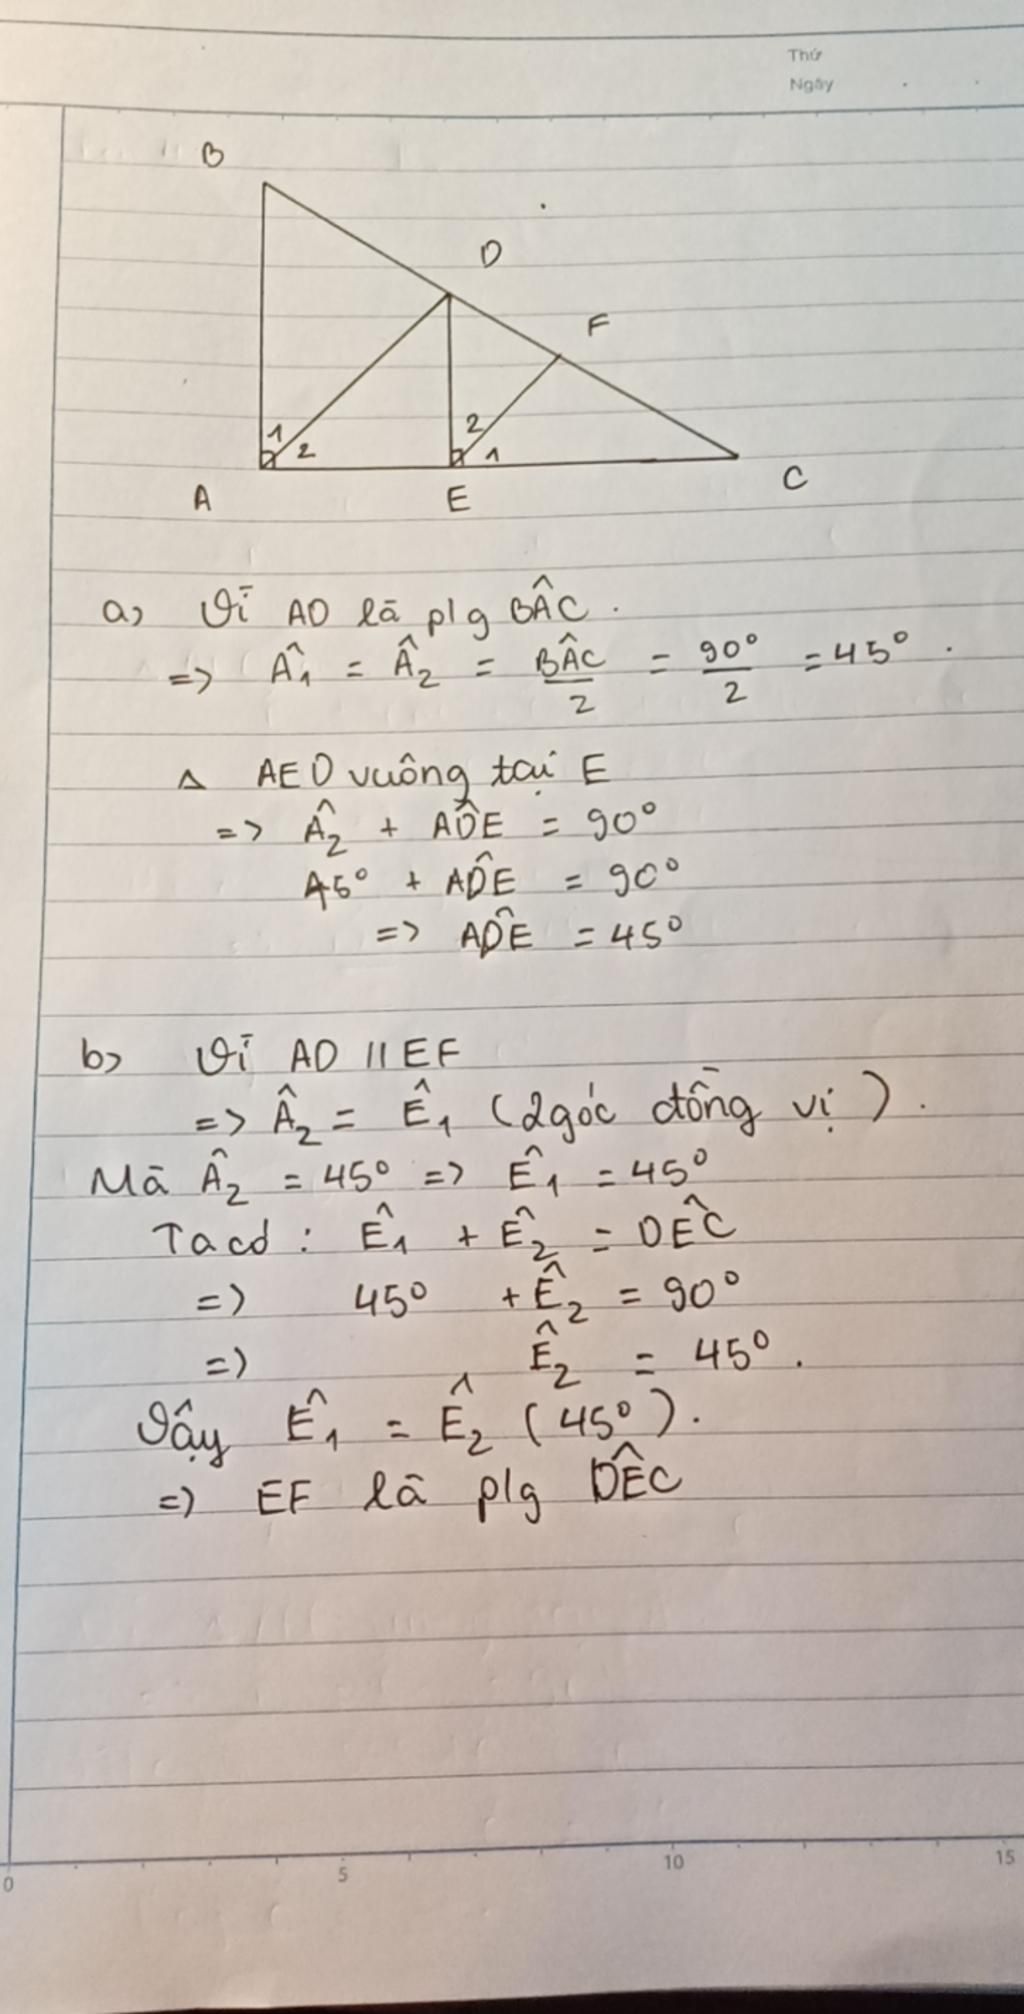 Thứ
Ngày
B
D
F
1
2
2
1
A
E
C
a) Vì AD là p/g BÂC.
=> Â1 = Â2 = BÂC/2 = 90°/2 = 45°.
Δ AED vuông tại E
=> Â2 + AD̂E = 90°
45° + AD̂E = 90°
=> AD̂E = 45°
b) Vì AD // EF
=> Â2 = Ê1 (2 góc đồng vị).
Mà Â2 = 45° => Ê1 = 45°
Ta có : Ê1 + Ê2 = DÊC
=> 45° + Ê2 = 90°
=> Ê2 = 45°.
Vậy Ê1 = Ê2 (45°).
=> EF là p/g DÊC
0 5 10 15